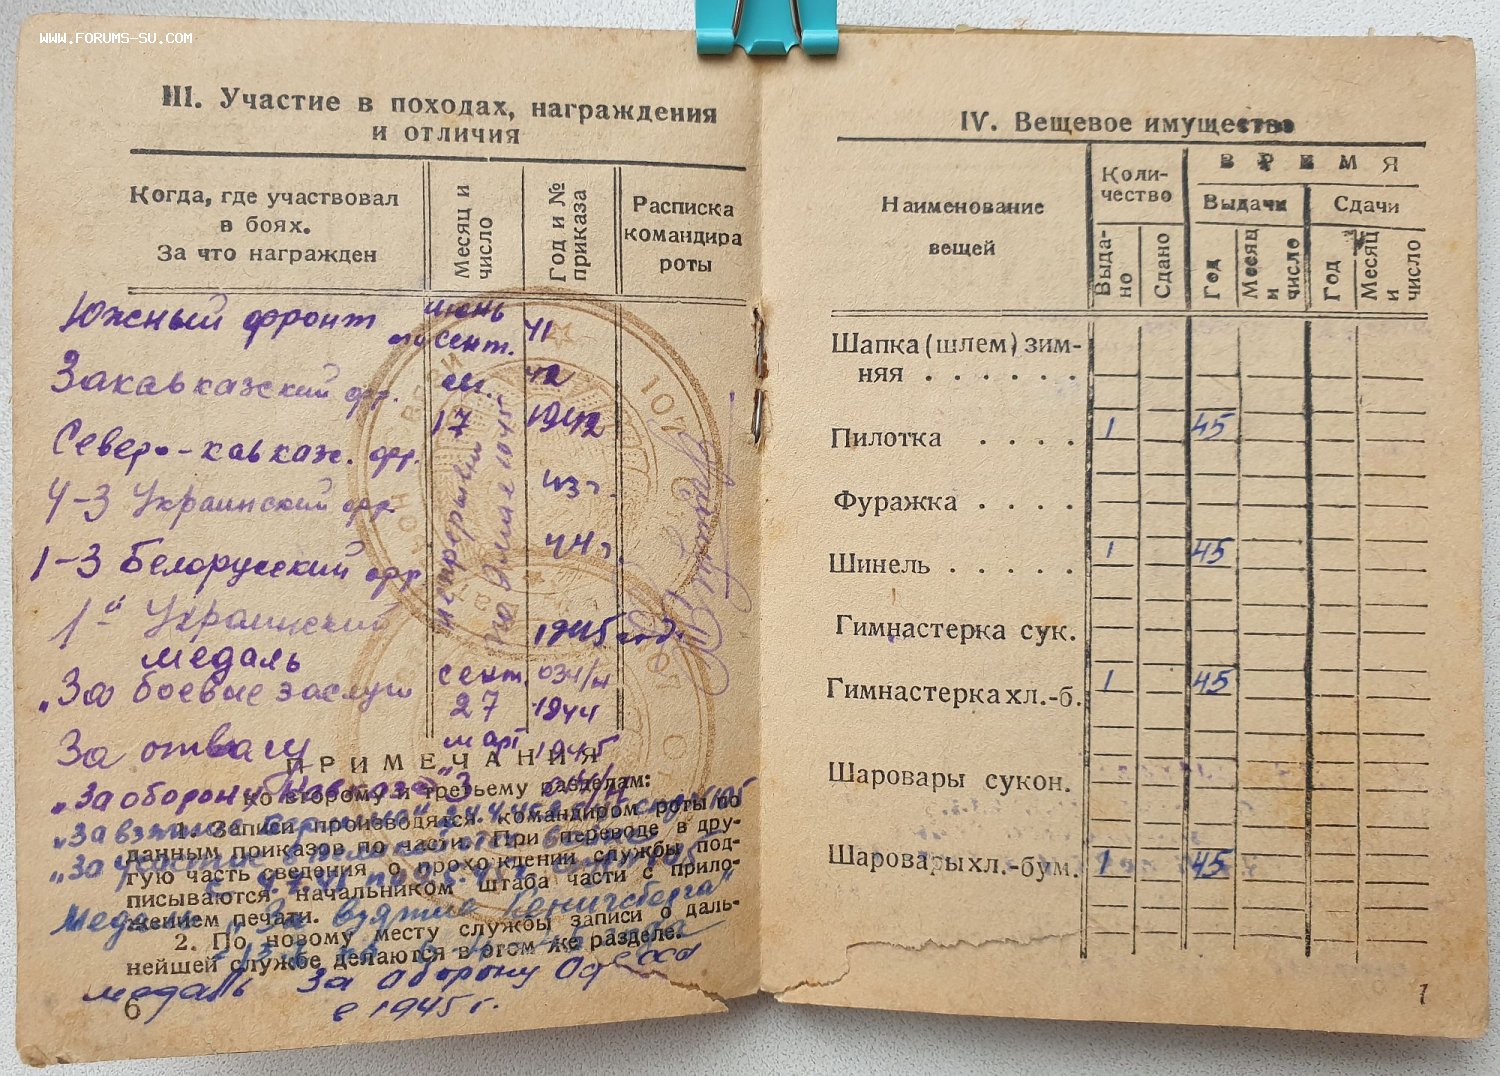 WWW.FORUMS-SU.COM
III. Участие в походах, награждения
и отличия
Когда, где участвовал
в боях.
За что награжден
Месяц и
число
Год и №
приказа
Расписка
командира
роты
Южный фронт июнь 41
по сент.
Закавказский фр. 42
17 1942
Северо-кавказ. фр.
43г.
4-3 Украинский фр.
44г.
1-3 Белорусский фр.
непрерывно
по 9 мая 1945
1й Украинский 1945 год.
медаль
„За боевые заслуги сент. 034/н
27 1944
За отвагу март 1945
ПРИМЕЧАНИЯ
„За оборону Кавказа" 3
ко второму и третьему разделам:
„За взятие Берлина"
1. Записи производятся командиром роты по
данным приказов по части. При переводе в дру-
гую часть сведения о прохождении службы под-
писываются начальником штаба части с прило-
жением печати.
Медаль „За взятие Кенигсберга"
2. По новому месту службы записи о даль-
нейшей службе делаются в этом же разделе.
медаль За оборону Одессы
в 1945 г.
6
IV. Вещевое имущество
Наименование
вещей
Коли-
чество
ВРЕМЯ
Выдачи
Сдачи
Выда-
но
Сдано
Год
Месяц
и
число
Год
Месяц
и
число
Шапка (шлем) зим-
няя . . . . . .
Пилотка . . . . 1 45
Фуражка . . . .
Шинель . . . . . 1 45
Гимнастерка сук.
Гимнастерка хл.-б. 1 45
Шаровары сукон.
Шаровары хл.-бум. 1 45
7